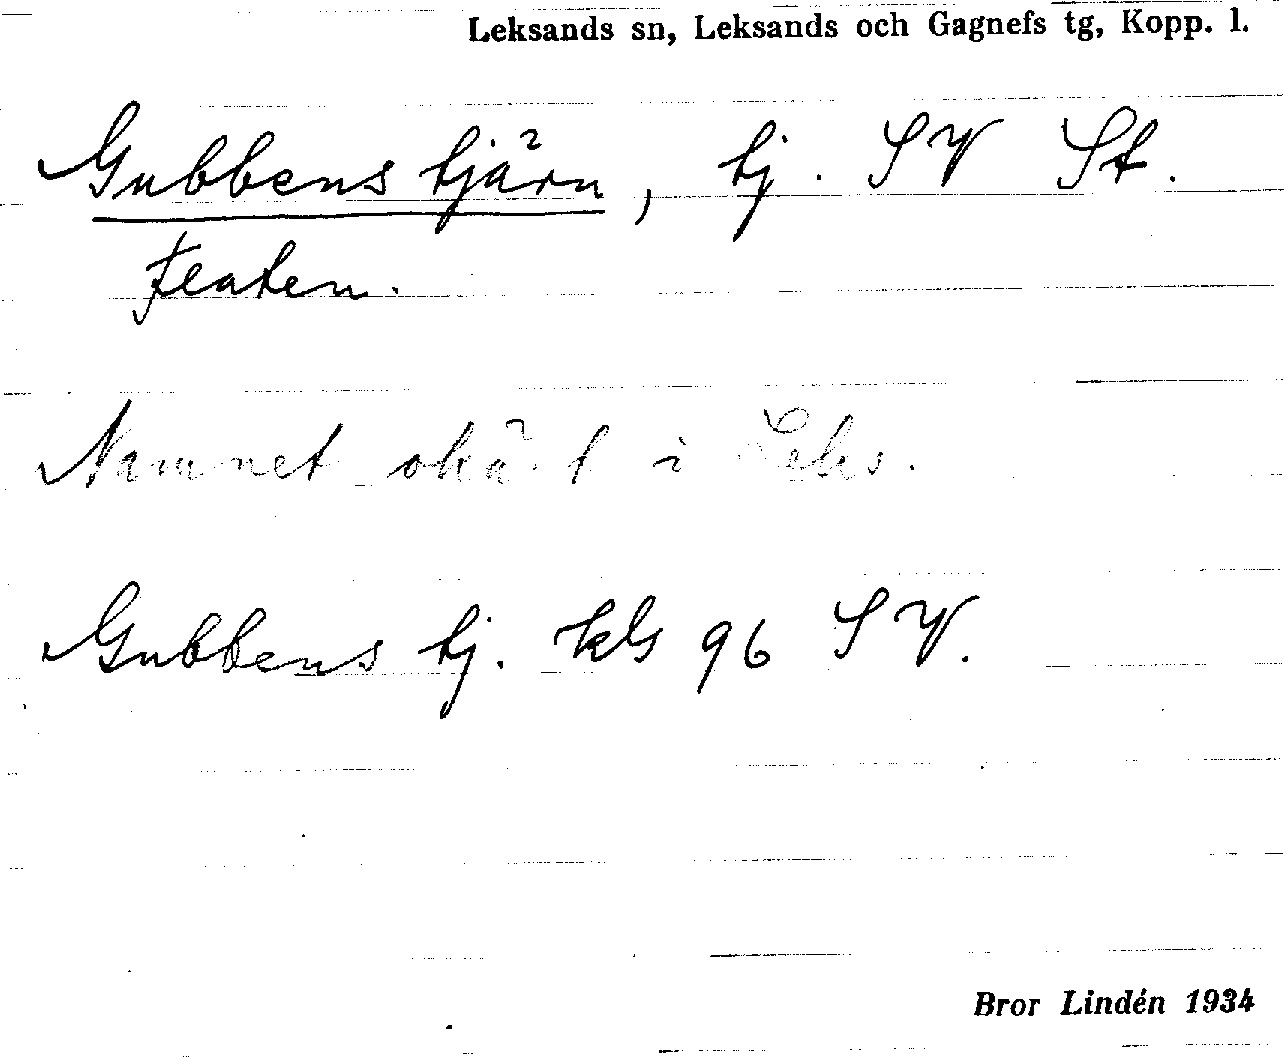 Leksands sn, Leksands och Gagnefs tg, Kopp. l.
Gubbens tjärn, tj. SV St.
Flaten.
Namnet okänt i Leks.
Gubbens tj. kbl 96 SV.
Bror Lindén 1934